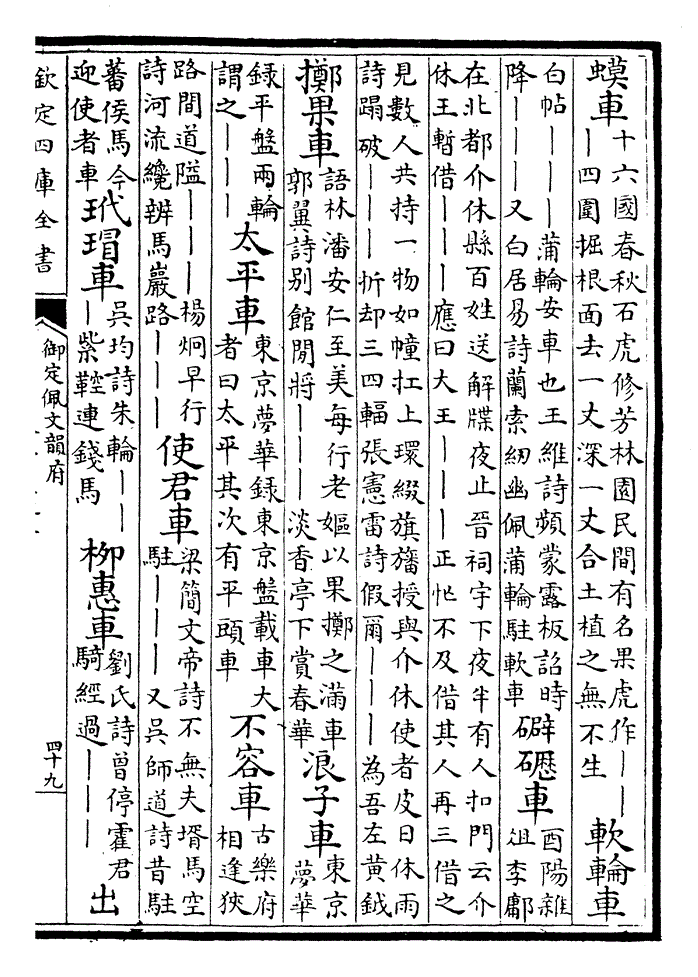 蟆車
十六國春秋石虎修芳林園民間有名果虎作｜｜
｜四圍掘根面去一丈深一丈合土植之無不生
軟輪車
白帖｜｜｜蒲輪安車也王維詩頻蒙露板詔時
降｜｜｜又白居易詩蘭索紉幽佩蒲輪駐軟車
礔礰車
酉陽雜
俎李鄘
在北都介休縣百姓送解牒夜止晉祠宇下夜半有人扣門云介
休王暫借｜｜｜應曰大王｜｜｜正忙不及借其人再三借之
見數人共持一物如幢扛上環綴旗旛授與介休使者皮日休雨
詩蹋破｜｜｜折却三四輻張憲雷詩假爾｜｜｜為吾左黃鉞
擲果車
語林潘安仁至美每行老嫗以果擲之滿車
郭翼詩別館閒將｜｜｜淡香亭下賞春華
浪子車
東京
夢華
録平盤兩輪
謂之｜｜｜
太平車
東京夢華録東京盤載車大
者曰太平其次有平頭車
不容車
古樂府
相逢狹
路間道隘｜｜｜楊烱早行
詩河流纔辨馬巖路｜｜｜
使君車
梁簡文帝詩不無夫壻馬空
駐｜｜｜又吳師道詩昔駐
蕃侯馬今
迎使者車
玳瑁車
吳均詩朱輪｜｜
｜紫鞚連錢馬
柳惠車
劉氏詩曾停霍君
騎經過｜｜｜
出
欽定四庫全書
御定佩文韻府
四十九